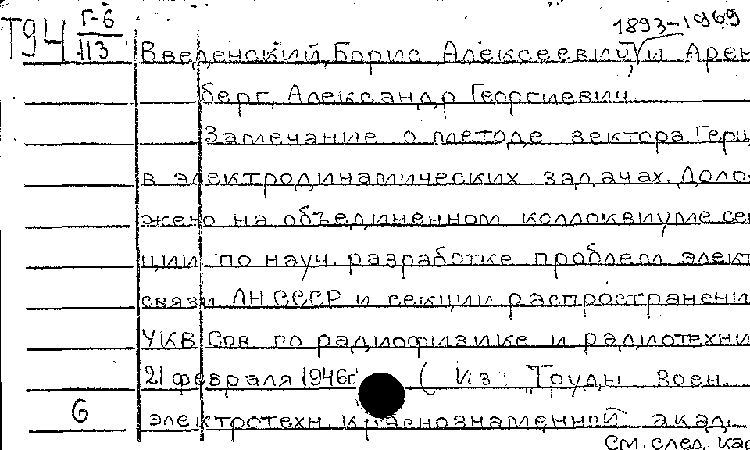 1893-1969
Т94 Г-6
113
Введенский, Борис Алексеевич, и Арен
берг, Александр Георгиевич
Замечание о методе вектора Герц
в электродинамических задачах. Доло-
жено на объединенном коллоквиуме сек
ции по науч. разработке проблем элект
связи АН СССР и секции распространени
УКВ Сов. по радиофизике и радиотехни
21 февраля 1946г. (Из: Труды Воен.
6 электротехн. краснознаменной акад.
См. след. кар